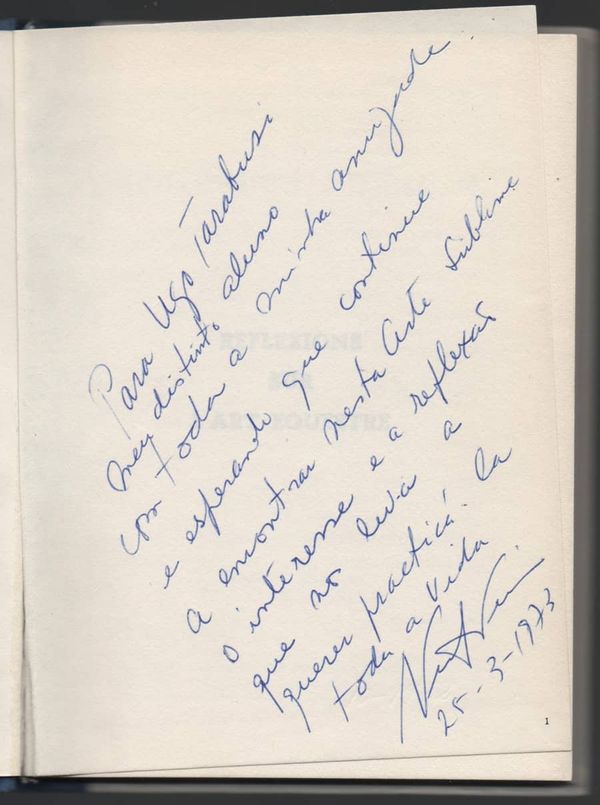 Para Ugo Tarabusi
meu distinto aluno
com toda a minha amizade
e esperando que continue
a encontrar nesta Arte Sublime
o interesse e a reflexão
que nos leva a
querer practicá-la
toda a vida
25-3-1973
REFLEZIONE
ART EQUESTRE
1